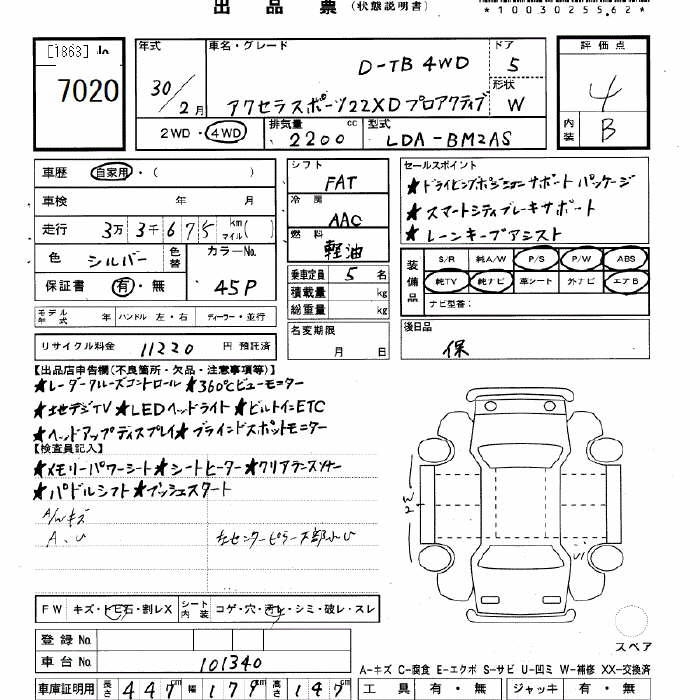 出品票（状態説明書）
*10030255,62*
[1863]
7020
年式 30/2月
車名・グレード D-TB 4WD
アクセラスポーツ22XDプロアクティブ
ドア 5
形状 W
2WD・4WD
排気量 2200 cc
型式 LDA-BM2AS
評価点 4
内装 B
車歴 自家用・( )
車検 年 月
走行 3万 3千 6 7 5 km マイル( )
色 シルバー 色替
カラーNo. 45P
保証書 有・無
シフト FAT
冷房 AAC
燃料 軽油
乗車定員 5 名
積載量 kg
総重量 kg
名変期限 月 日
セールスポイント
★ドライビングポジションサポートパッケージ
★スマートシティブレーキサポート
★レーンキープアシスト
装備品
S/R 純A/W P/S P/W ABS
純TV 純ナビ 革シート 外ナビ エアB
ナビ型番：
後日品
保
モデル年式 年 ハンドル 左・右 ディーラー・並行
リサイクル料金 11220 円 預託済
【出品店申告欄(不良箇所・欠品・注意事項等)】
★レーダークルーズコントロール★360℃ビューモニター
★地デジTV★LEDヘッドライト★ビルトインETC
★ヘッドアップディスプレイ★ブラインドスポットモニター
【検査員記入】
★メモリーパワーシート★シートヒーター★クリアランスソナー
★パドルシフト★プッシュスタート
A/Wキズ
A、U
左センターピラー下部小U
2W
U1
FW キズ・トビ石・割レX
シート内装 コゲ・穴・汚レ・シミ・破レ・スレ
登録No.
車台No. 101340
車庫証明用 長さ 447cm 幅 179cm 高さ 147cm
スペア
A-キズ C-腐食 E-エクボ S-サビ U-凹ミ W-補修 XX-交換済
工具 有・無 ジャッキ 有・無